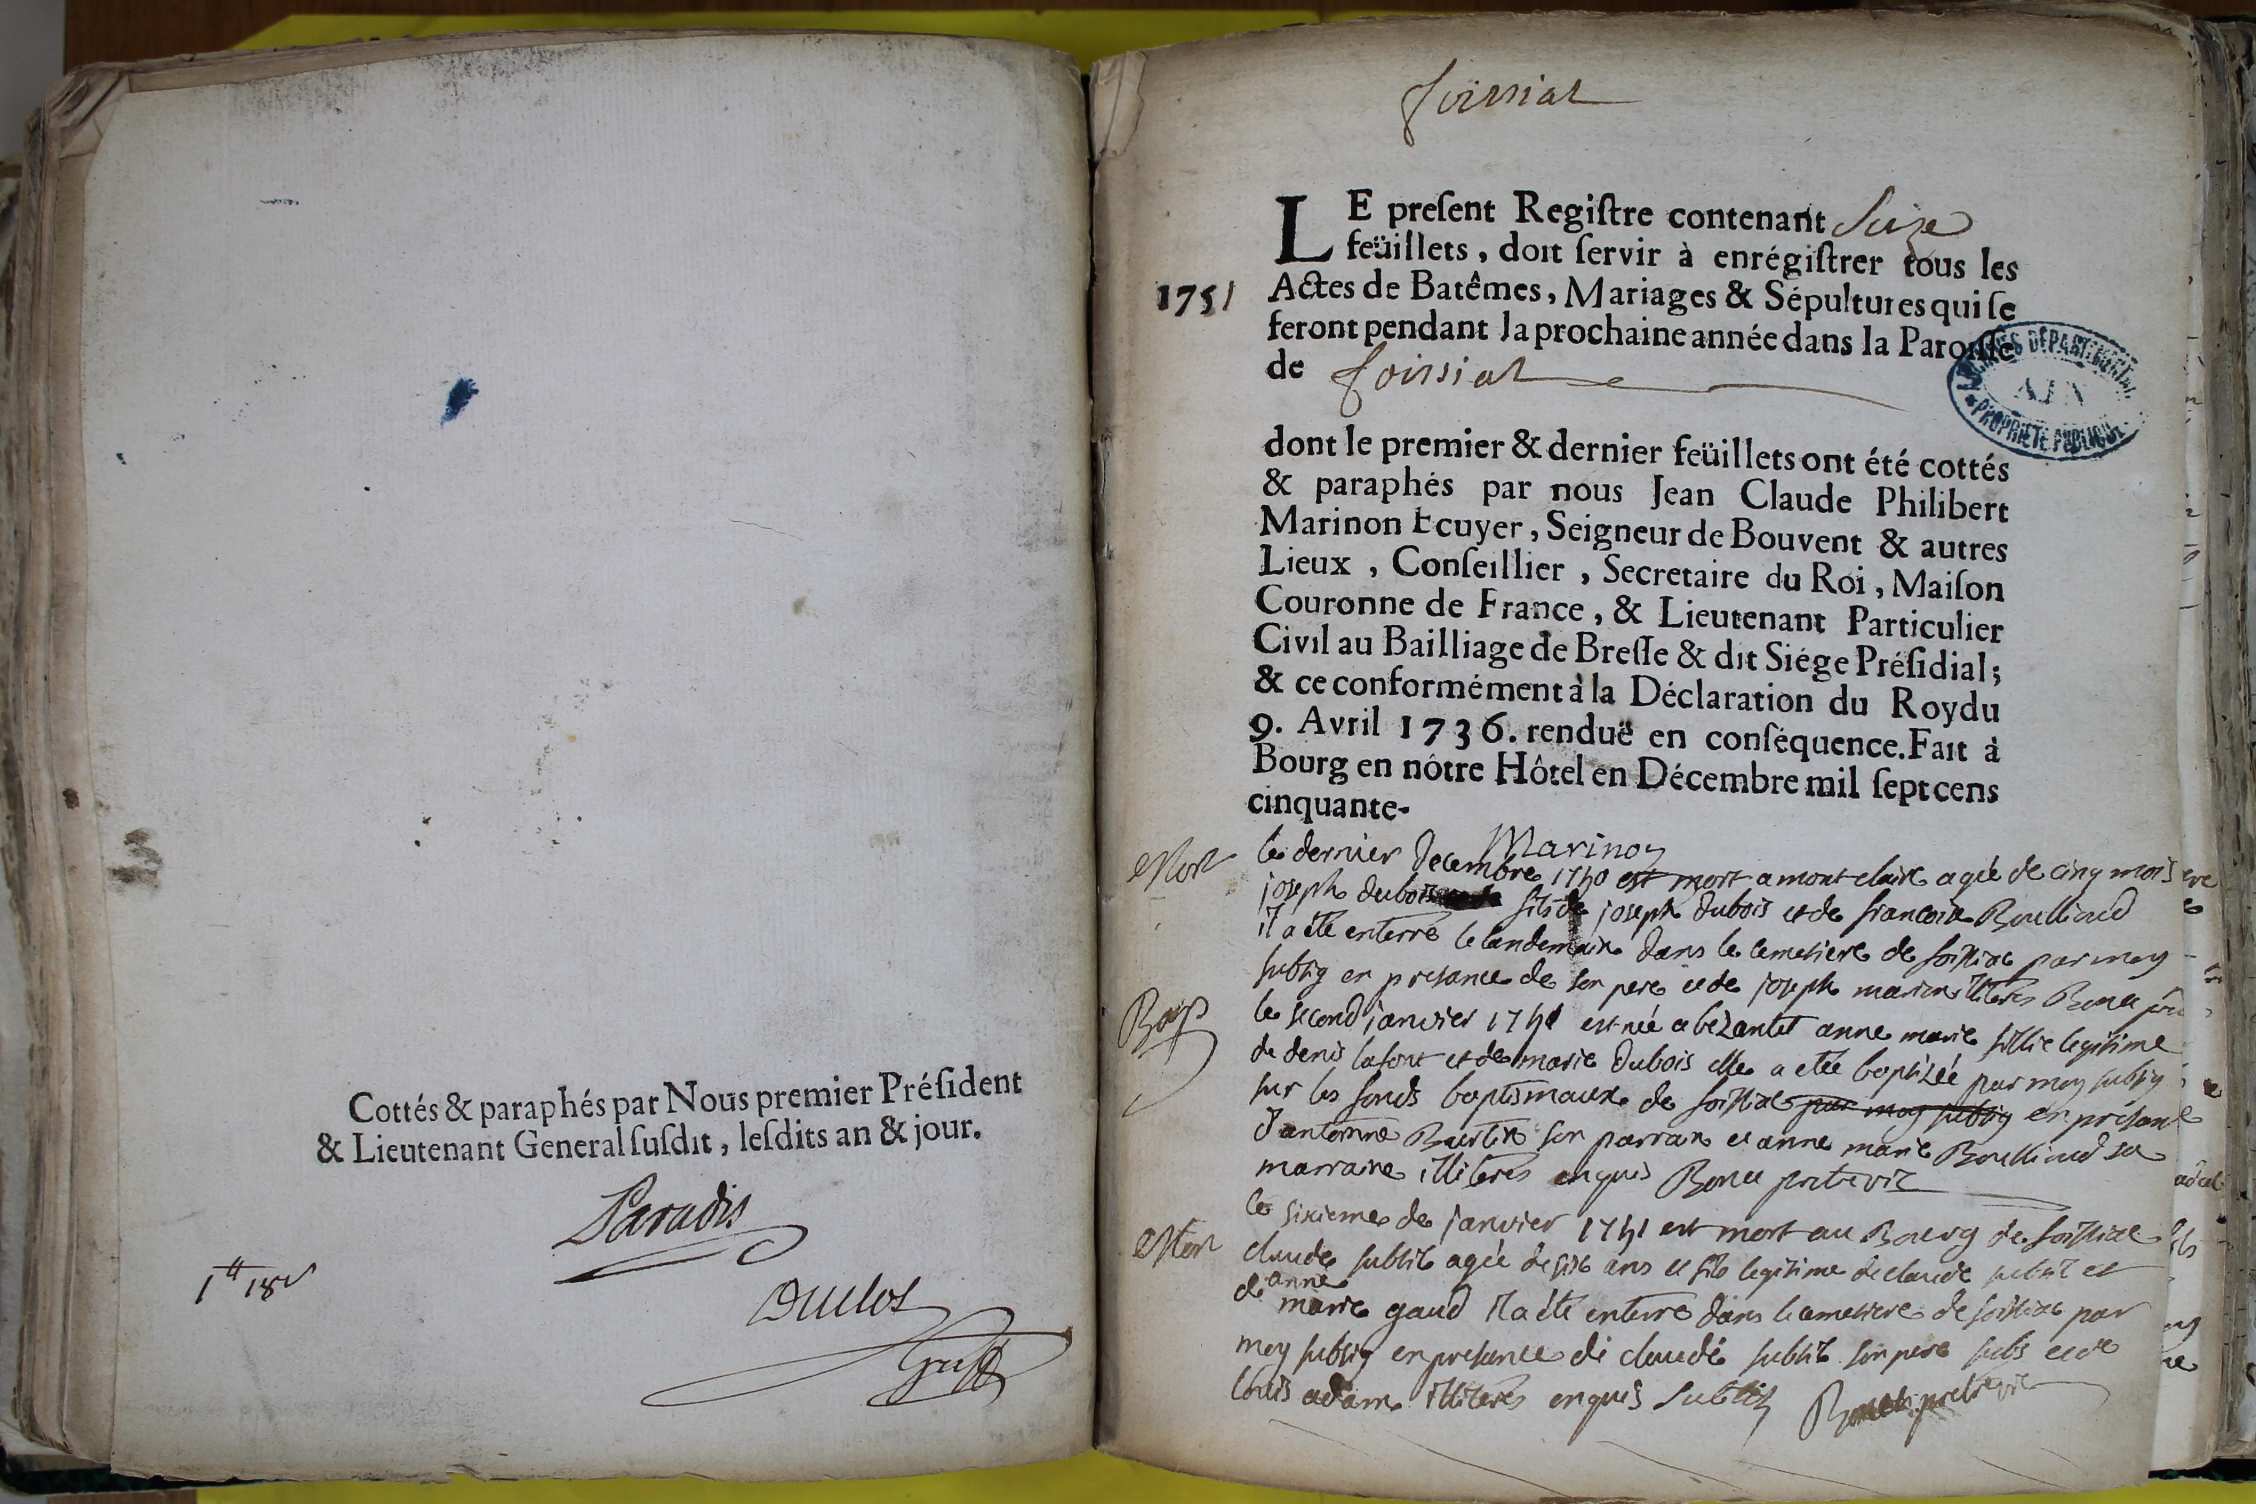 Cottés & paraphés par Nous premier Préſident
& Lieutenant General ſuſdit, leſdits an & jour.
Paradis
Duclos
foissiat
LE preſent Regiſtre contenant Seize
feüillets, doit ſervir à enrégiſtrer tous les
1751
Actes de Batêmes, Mariages & Sépultures qui ſe
feront pendant la prochaine année dans la Paroiſſe
de foissiat
ARCHIVES DÉPARTEMENTALES
AIN
PROPRIÉTÉ PUBLIQUE
dont le premier & dernier feüillets ont été cottés
& paraphés par nous Jean Claude Philibert
Marinon Ecuyer, Seigneur de Bouvent & autres
Lieux, Conſeillier, Secretaire du Roi, Maiſon
Couronne de France, & Lieutenant Particulier
Civil au Bailliage de Breſſe & dit Siége Préſidial;
& ce conformément à la Déclaration du Roy du
9. Avril 1736. renduë en conſéquence. Fait à
Bourg en nôtre Hôtel en Décembre mil ſept cens
cinquante.
Marinon
Mort
le dernier decembre 1750 est mort a mont claire agée de cinq mois
joseph dubois fils de joseph dubois et de francoise Boulliaud
il a été enterré le landemain dans le cemetiere de foissiat par moy
subsig en presance de son pere et de joseph marion illiteres
Bap
le second janvier 1751 est née a bezentet anne marie fillie legitime
de denis lafont et de marie dubois elle a etée baptizée par moy subsig
sur les fonds baptismaux de foissiat par moy subsig en presance
d'antoinne son parrain et anne marie Boulliaud sa
marraine illiteres enquis
Mort
le sixieme de janvier 1751 est mort au Bourg de foissiat
claude subtil agée de six ans et fils legitime de claude subtil et
d'anne
marie gaud il a été enterré dans le cemetiere de foissiat par
moy subsig en presance de claude subtil son pere subs et de
louis adam illiteres enquis Subtil